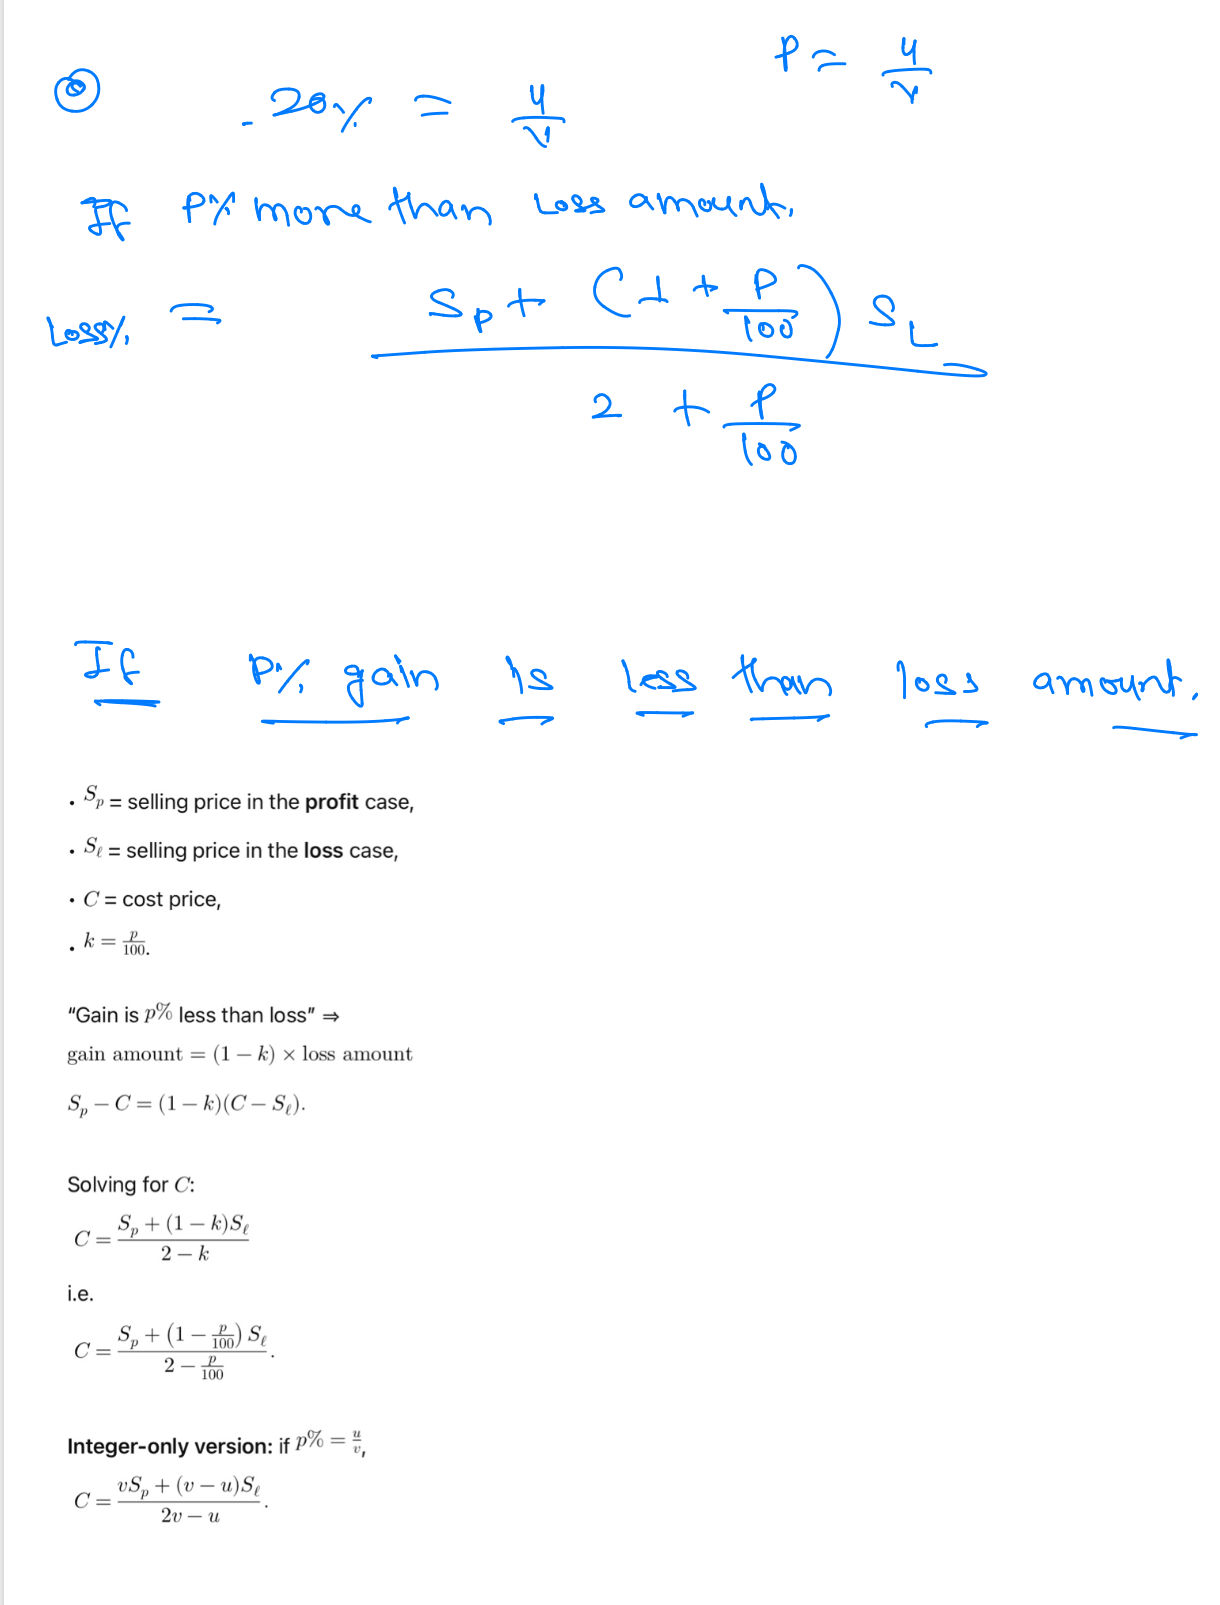 P = u/v
20% = u/v
If P% more than Loss amount.
Loss% = (S_P + (1 + P/100) S_L) / (2 + P/100)
If P% gain is less than loss amount.
• S_p = selling price in the profit case,
• S_ℓ = selling price in the loss case,
• C = cost price,
• k = p/100.
"Gain is p% less than loss" ⇒
gain amount = (1 − k) × loss amount
S_p − C = (1 − k)(C − S_ℓ).
Solving for C:
C = (S_p + (1 − k)S_ℓ) / (2 − k)
i.e.
C = (S_p + (1 − p/100) S_ℓ) / (2 − p/100).
Integer-only version: if p% = u/v,
C = (vS_p + (v − u)S_ℓ) / (2v − u).